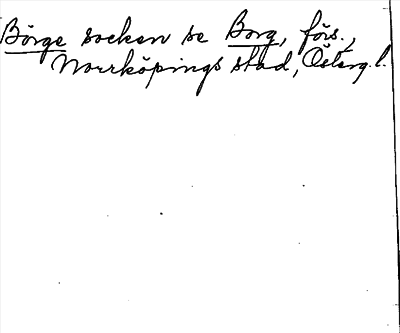 Börge socken se Borg, förs.,
Norrköpings stad, Österg. l.